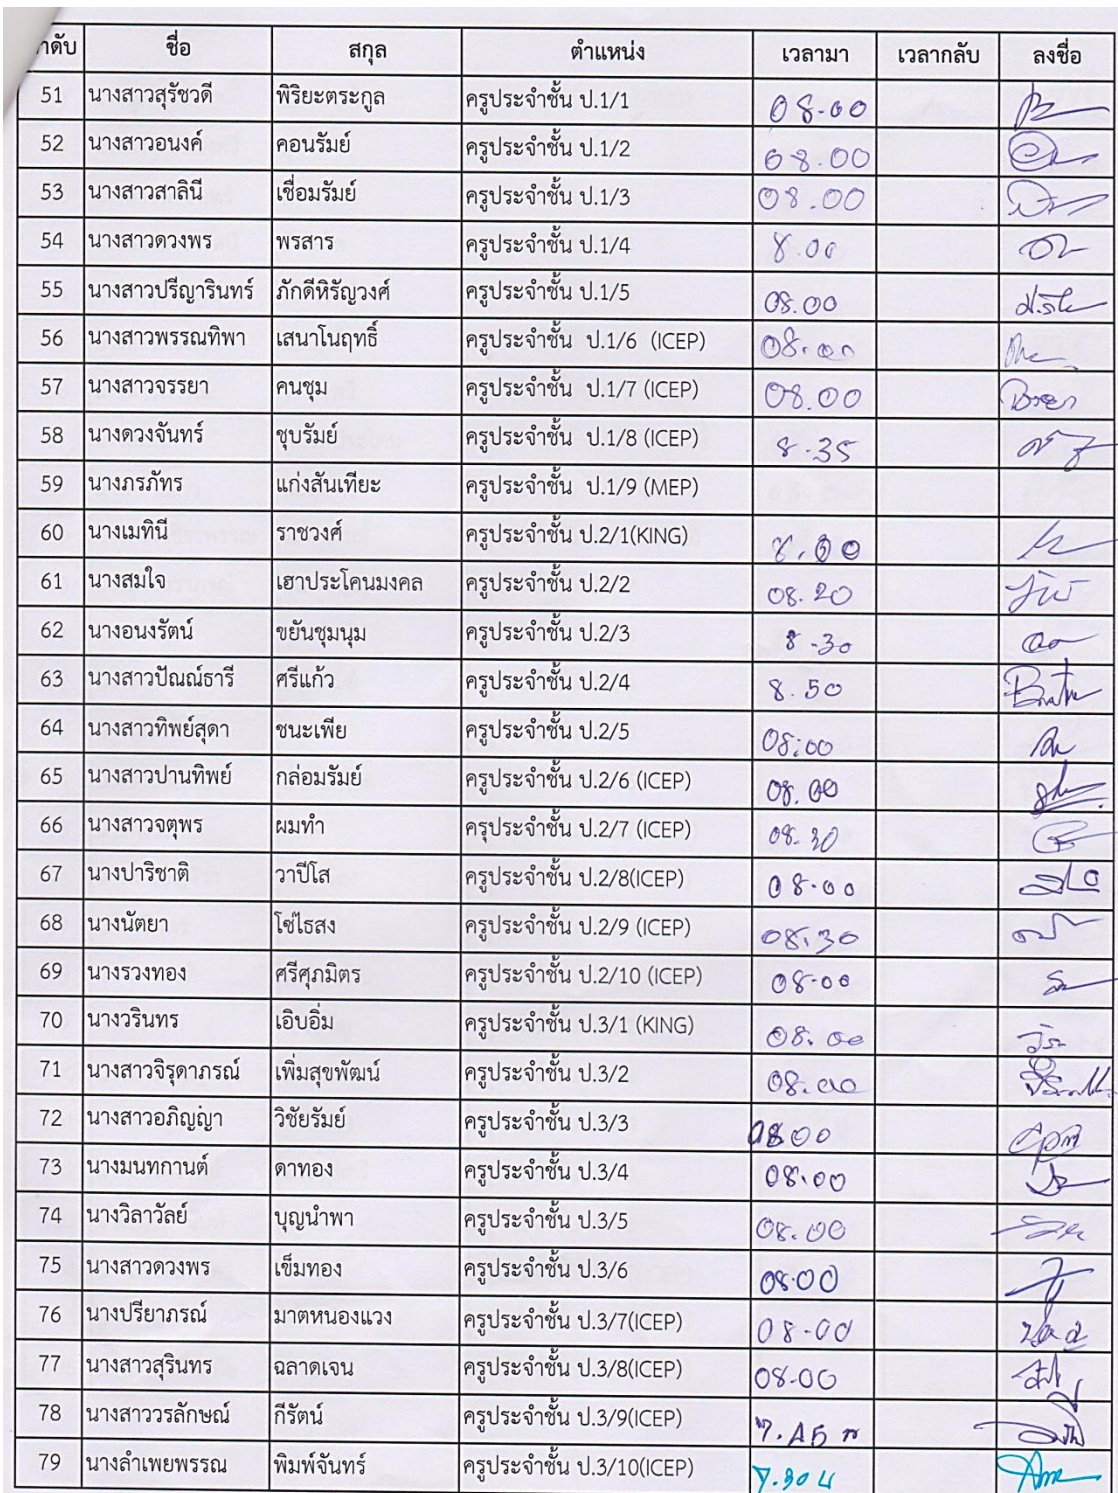 ชื่อ สกุล ตำแหน่ง เวลามา เวลากลับ ลงชื่อ
51 นางสาวสุรัชวดี พิริยะตระกูล ครูประจำชั้น ป.1/1 08.00
52 นางสาวอนงค์ คอนรัมย์ ครูประจำชั้น ป.1/2 08.00
53 นางสาวสาลินี เชื่อมรัมย์ ครูประจำชั้น ป.1/3 08.00
54 นางสาวดวงพร พรสาร ครูประจำชั้น ป.1/4 8.00
55 นางสาวปรีญารินทร์ ภักดีหิรัญวงศ์ ครูประจำชั้น ป.1/5 08.00
56 นางสาวพรรณทิพา เสนาโนฤทธิ์ ครูประจำชั้น ป.1/6 (ICEP) 08.00
57 นางสาวจรรยา คนชุม ครูประจำชั้น ป.1/7 (ICEP) 08.00
58 นางดวงจันทร์ ชุบรัมย์ ครูประจำชั้น ป.1/8 (ICEP) 8.35
59 นางภรภัทร แก่งสันเทียะ ครูประจำชั้น ป.1/9 (MEP)
60 นางเมทินี ราชวงศ์ ครูประจำชั้น ป.2/1(KING) 8.00
61 นางสมใจ เฮาประโคนมงคล ครูประจำชั้น ป.2/2 08.20
62 นางอนงรัตน์ ขยันชุมนุม ครูประจำชั้น ป.2/3 8.30
63 นางสาวปัณณ์ธารี ศรีแก้ว ครูประจำชั้น ป.2/4 8.50
64 นางสาวทิพย์สุดา ชนะเพีย ครูประจำชั้น ป.2/5 08:00
65 นางสาวปานทิพย์ กล่อมรัมย์ ครูประจำชั้น ป.2/6 (ICEP) 08.00
66 นางสาวจตุพร ผมทำ ครุประจำชั้น ป.2/7 (ICEP) 08.30
67 นางปาริชาติ วาปีโส ครูประจำชั้น ป.2/8(ICEP) 08.00
68 นางนัตยา โซ่ไธสง ครูประจำชั้น ป.2/9 (ICEP) 08.30
69 นางรวงทอง ศรีศุภมิตร ครูประจำชั้น ป.2/10 (ICEP) 08.00
70 นางวรินทร เอิบอิ่ม ครูประจำชั้น ป.3/1 (KING) 08.00
71 นางสาวจิรุดาภรณ์ เพิ่มสุขพัฒน์ ครูประจำชั้น ป.3/2 08.00
72 นางสาวอภิญญา วิชัยรัมย์ ครูประจำชั้น ป.3/3 0800
73 นางมนทกานต์ ดาทอง ครูประจำชั้น ป.3/4 08.00
74 นางวิลาวัลย์ บุญนำพา ครูประจำชั้น ป.3/5 08.00
75 นางสาวดวงพร เข็มทอง ครูประจำชั้น ป.3/6 08.00
76 นางปรียาภรณ์ มาตหนองแวง ครูประจำชั้น ป.3/7(ICEP) 08-00
77 นางสาวสุรินทร ฉลาดเจน ครูประจำชั้น ป.3/8(ICEP) 08-00
78 นางสาววรลักษณ์ กีรัตน์ ครูประจำชั้น ป.3/9(ICEP) 7.45 น
79 นางลำเพยพรรณ พิมพ์จันทร์ ครูประจำชั้น ป.3/10(ICEP) 7.30 น